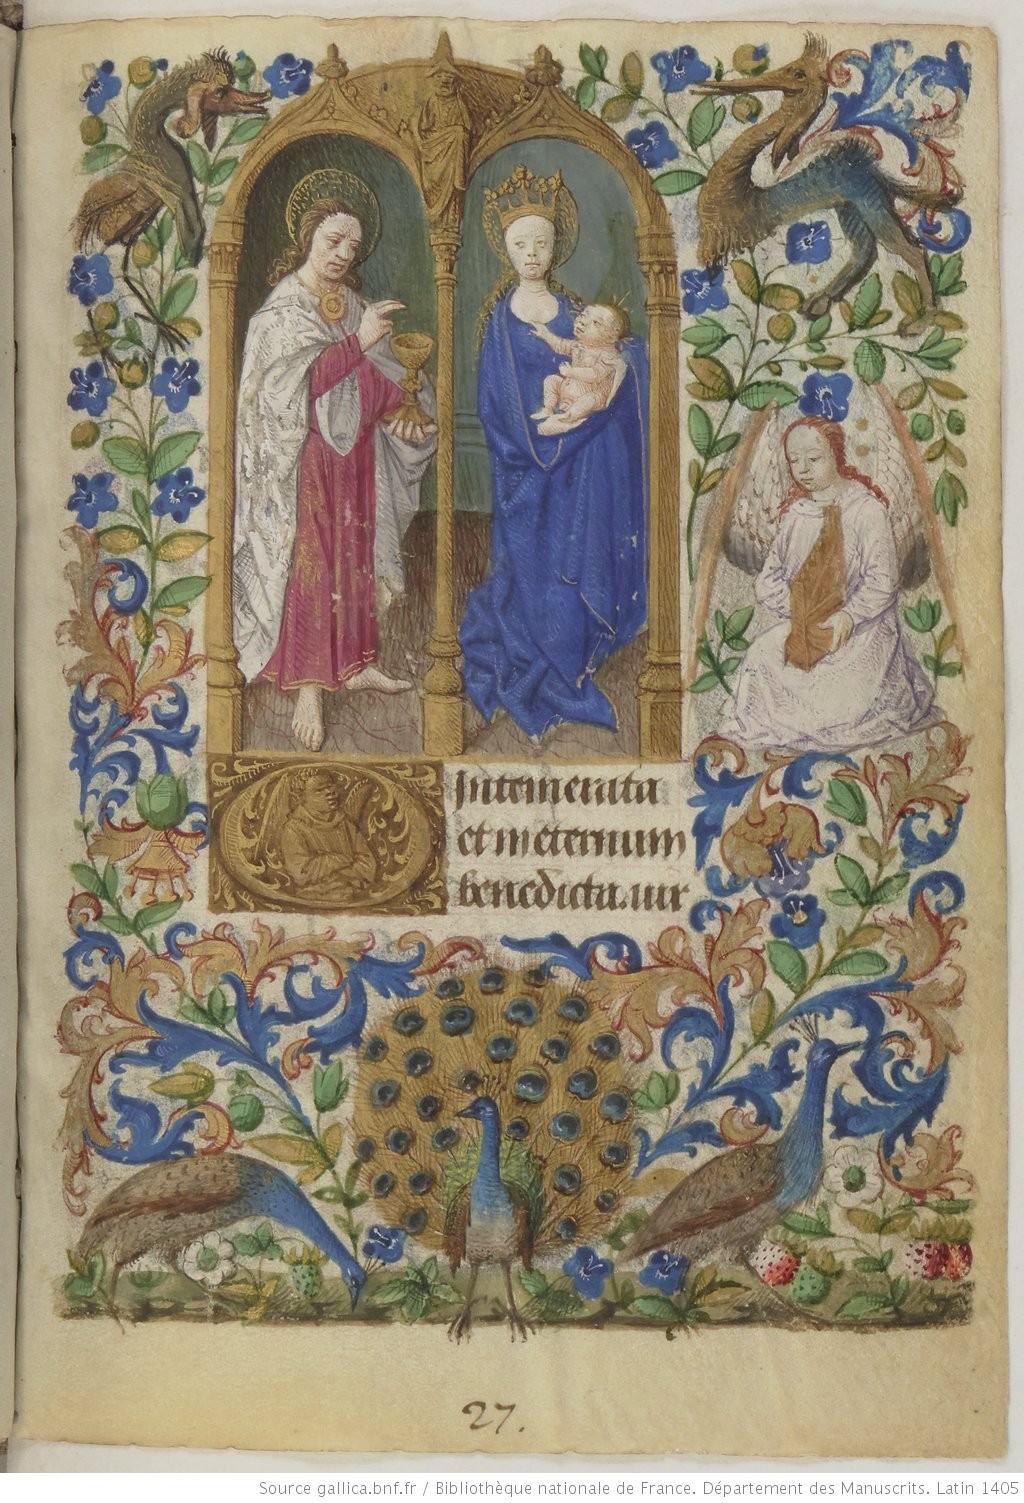 Intemerata
et in eternum
benedicta. uir
27.
Source gallica.bnf.fr / Bibliothèque nationale de France. Département des Manuscrits. Latin 1405